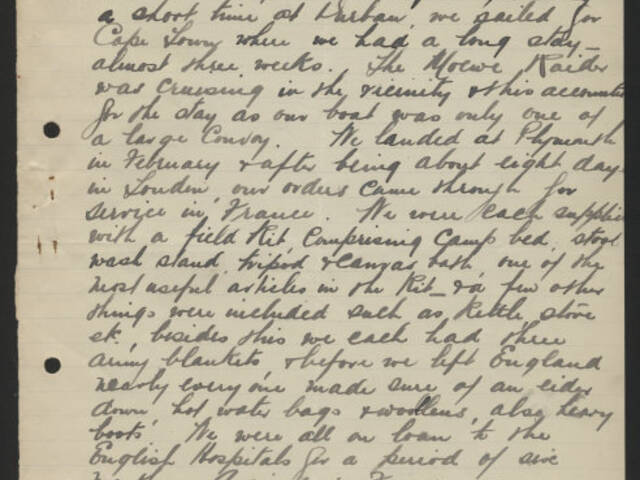 a short time at Durban, we sailed for
Cape Town where we had a long stay –
almost three weeks. The Moewe Raider
was cruising in the vicinity & this accounted
for the stay as our boat was only one of
a large Convoy. We landed at Plymouth
in February & after being about eight days
in London, our orders came through for
service in France. We were each supplied
with a field Kit, Comprising Camp bed, stool
wash stand, tripod & canvas bath, one of the
most useful articles in the Kit – & a few other
things were included such as, Kettle, stove
etc, besides this we each had three
army blankets, & before we left England
nearly everyone made sure of an eider
down, hot water bags & woollens, also heavy
boots. We were all on loan to the
English Hospitals for a period of six